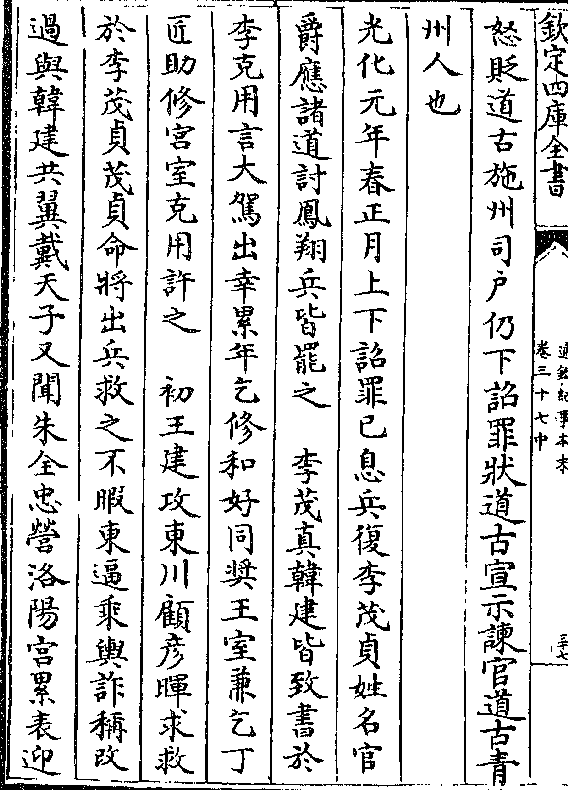 欽定四庫全書
通鑑紀事本末
卷三十七中
三十七
怒貶道古施州司户仍下詔罪狀道古宣示諫官道古青
州人也
光化元年春正月上下詔罪已息兵復李茂貞姓名官
爵應諸道討鳳翔兵皆罷之　李茂真韓建皆致書於
李克用言大駕出幸累年乞修和好同奬王室兼乞丁
匠助修宮室克用許之　初王建攻東川顧彦暉求救
於李茂貞茂貞命將出兵救之不暇東逼乘輿詐稱改
過與韓建共翼戴天子又聞朱全忠營洛陽宫累表迎